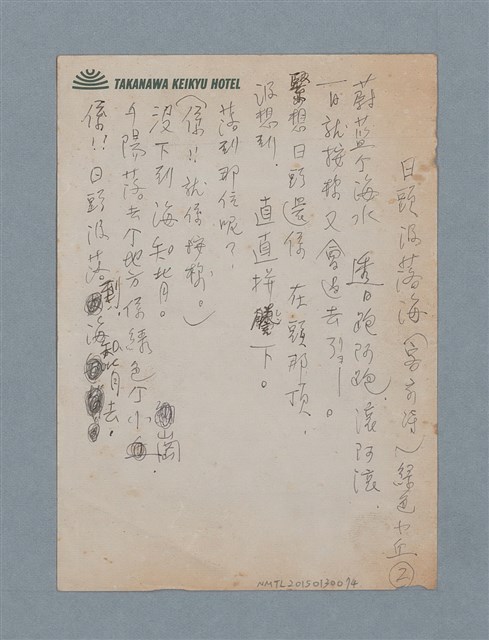 TAKANAWA KEIKYU HOTEL
日頭沒落海（客家詩）綠色小丘②
蔚藍个海水 透日跑阿跑，滾阿滾，
一日就按樣又會過去ㄌㄧㄛ一。
緊想日頭還係 在頭那頂，
沒想到， 直直拼 下。
落到那位呢？
（係!! 就係按樣。）
沒下到 海知背。
夕陽落去个地方係綠色个小崗．
係!! 日頭沒落到海知背去．
NMTL20150130074